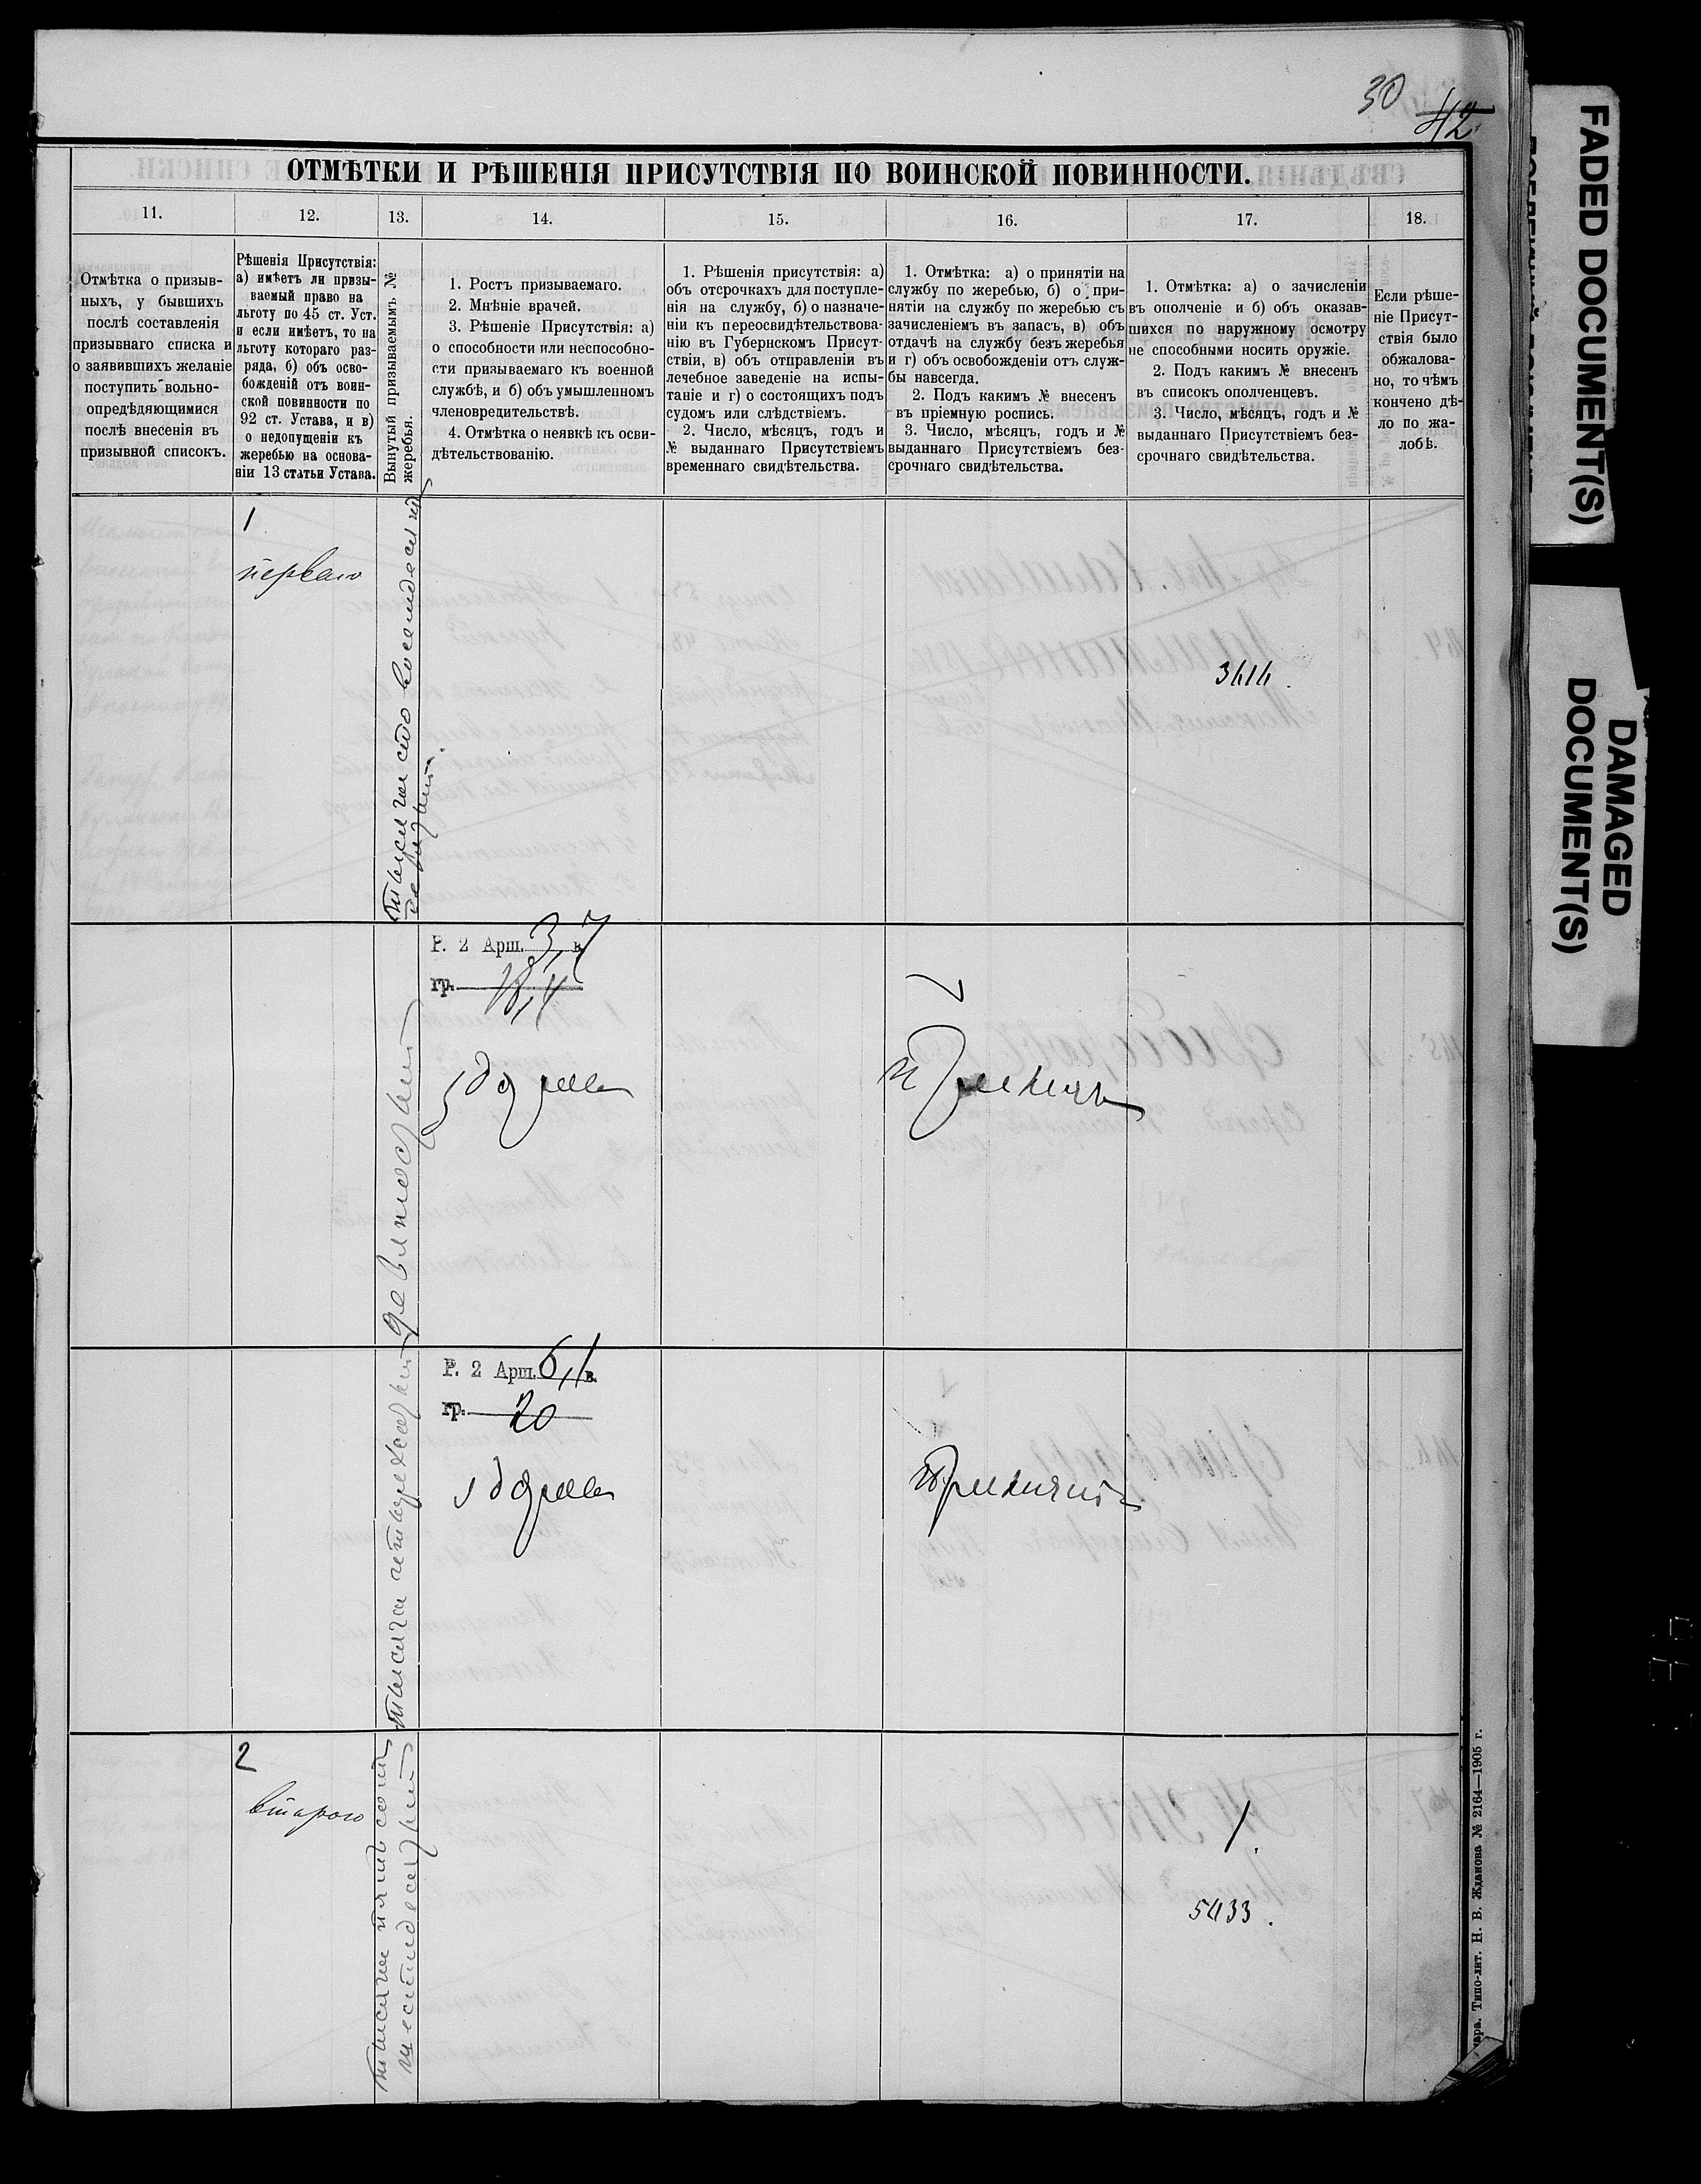 30
42
ОТМѢТКИ И РѢШЕНІЯ ПРИСУТСТВІЯ ПО ВОИНСКОЙ ПОВИННОСТИ.
11.
12.
13.
14.
15.
16.
17.
18.
Отмѣтка о призыв-
ныхъ, у бывшихъ
послѣ составленія
призывнаго списка и
о заявившихъ желаніе
поступить вольно-
опредѣдяющимися
послѣ внесенія въ
призывной списокъ.
Рѣшенія Присутствія:
а) имѣетъ ли призы-
ваемый право на
льготу по 45 ст. Уст.
и если имѣетъ, то на
льготу котораго раз-
ряда, б) объ осво-
божденій отъ воин-
ской повинности по
92 ст. Устава, и в)
о недопущеніи къ
жеребью на основа-
ніи 13 статьи Устава.
Вынутый призываемымъ №
жеребья.
1. Ростъ призываемаго.
2. Мнѣніе врачей.
3. Рѣшеніе Присутствія: а)
о способности или неспособно-
сти призываемаго къ военной
службѣ, и б) объ умышленномъ
членовредительствѣ.
4. Отмѣтка о неявкѣ къ осви-
дѣтельствованію.
1. Рѣшенія присутствія: а)
объ отсрочкахъ для поступле-
нія на службу, б) о назначе-
ніи къ переосвидѣтельствова-
нію въ Губернскомъ Присут-
ствіи, в) объ отправленіи въ
лечебное заведеніе на испы-
таніе и г) о состоящихъ подъ
судомъ или слѣдствіемъ.
2. Число, мѣсяцъ, годъ и
№ выданнаго Присутствіемъ
временнаго свидѣтельства.
1. Отмѣтка: а) о принятіи на
службу по жеребью, б) о при-
нятіи на службу по жеребью съ
зачисленіемъ въ запасъ, в) объ
отдачѣ на службу безъ жеребья
и г) объ освобожденіи отъ служ-
бы навсегда.
2. Подъ какимъ № внесенъ
въ пріемную роспись.
3. Число, мѣсяцъ, годъ и №
выданнаго Присутствіемъ без-
срочнаго свидѣтельства.
1. Отмѣтка: а) о зачисленіи
въ ополченіе и б) объ оказав-
шихся по наружному осмотру
не способными носить оружіе.
2. Подъ какимъ № внесенъ
въ списокъ ополченцевъ.
3. Число, мѣсяцъ, годъ и №
выданнаго Присутствіемъ без-
срочнаго свидѣтельства.
Если рѣше-
ніе Присут-
ствія было
обжалова-
но, то чѣмъ
кончено дѣ-
ло по жа-
лобѣ.
1
перваго
тысяча сто восемьдесятъ
девятый.
Р. 2 Арш. 3,7 в.
гр. 18,4
девяностый
здоровъ
принятъ
Р. 2 Арш. 6,1 в.
гр. 20
тысяча четырехсотый
здоровъ
принятъ
2
втораго
тысяча пятьсотъ
шестидесятый
1.
5433.
Типо-лит. Н. В. Жданова № 2164—1905 г.
FADED DOCUMENT(S)
DAMAGED
DOCUMENT(S)